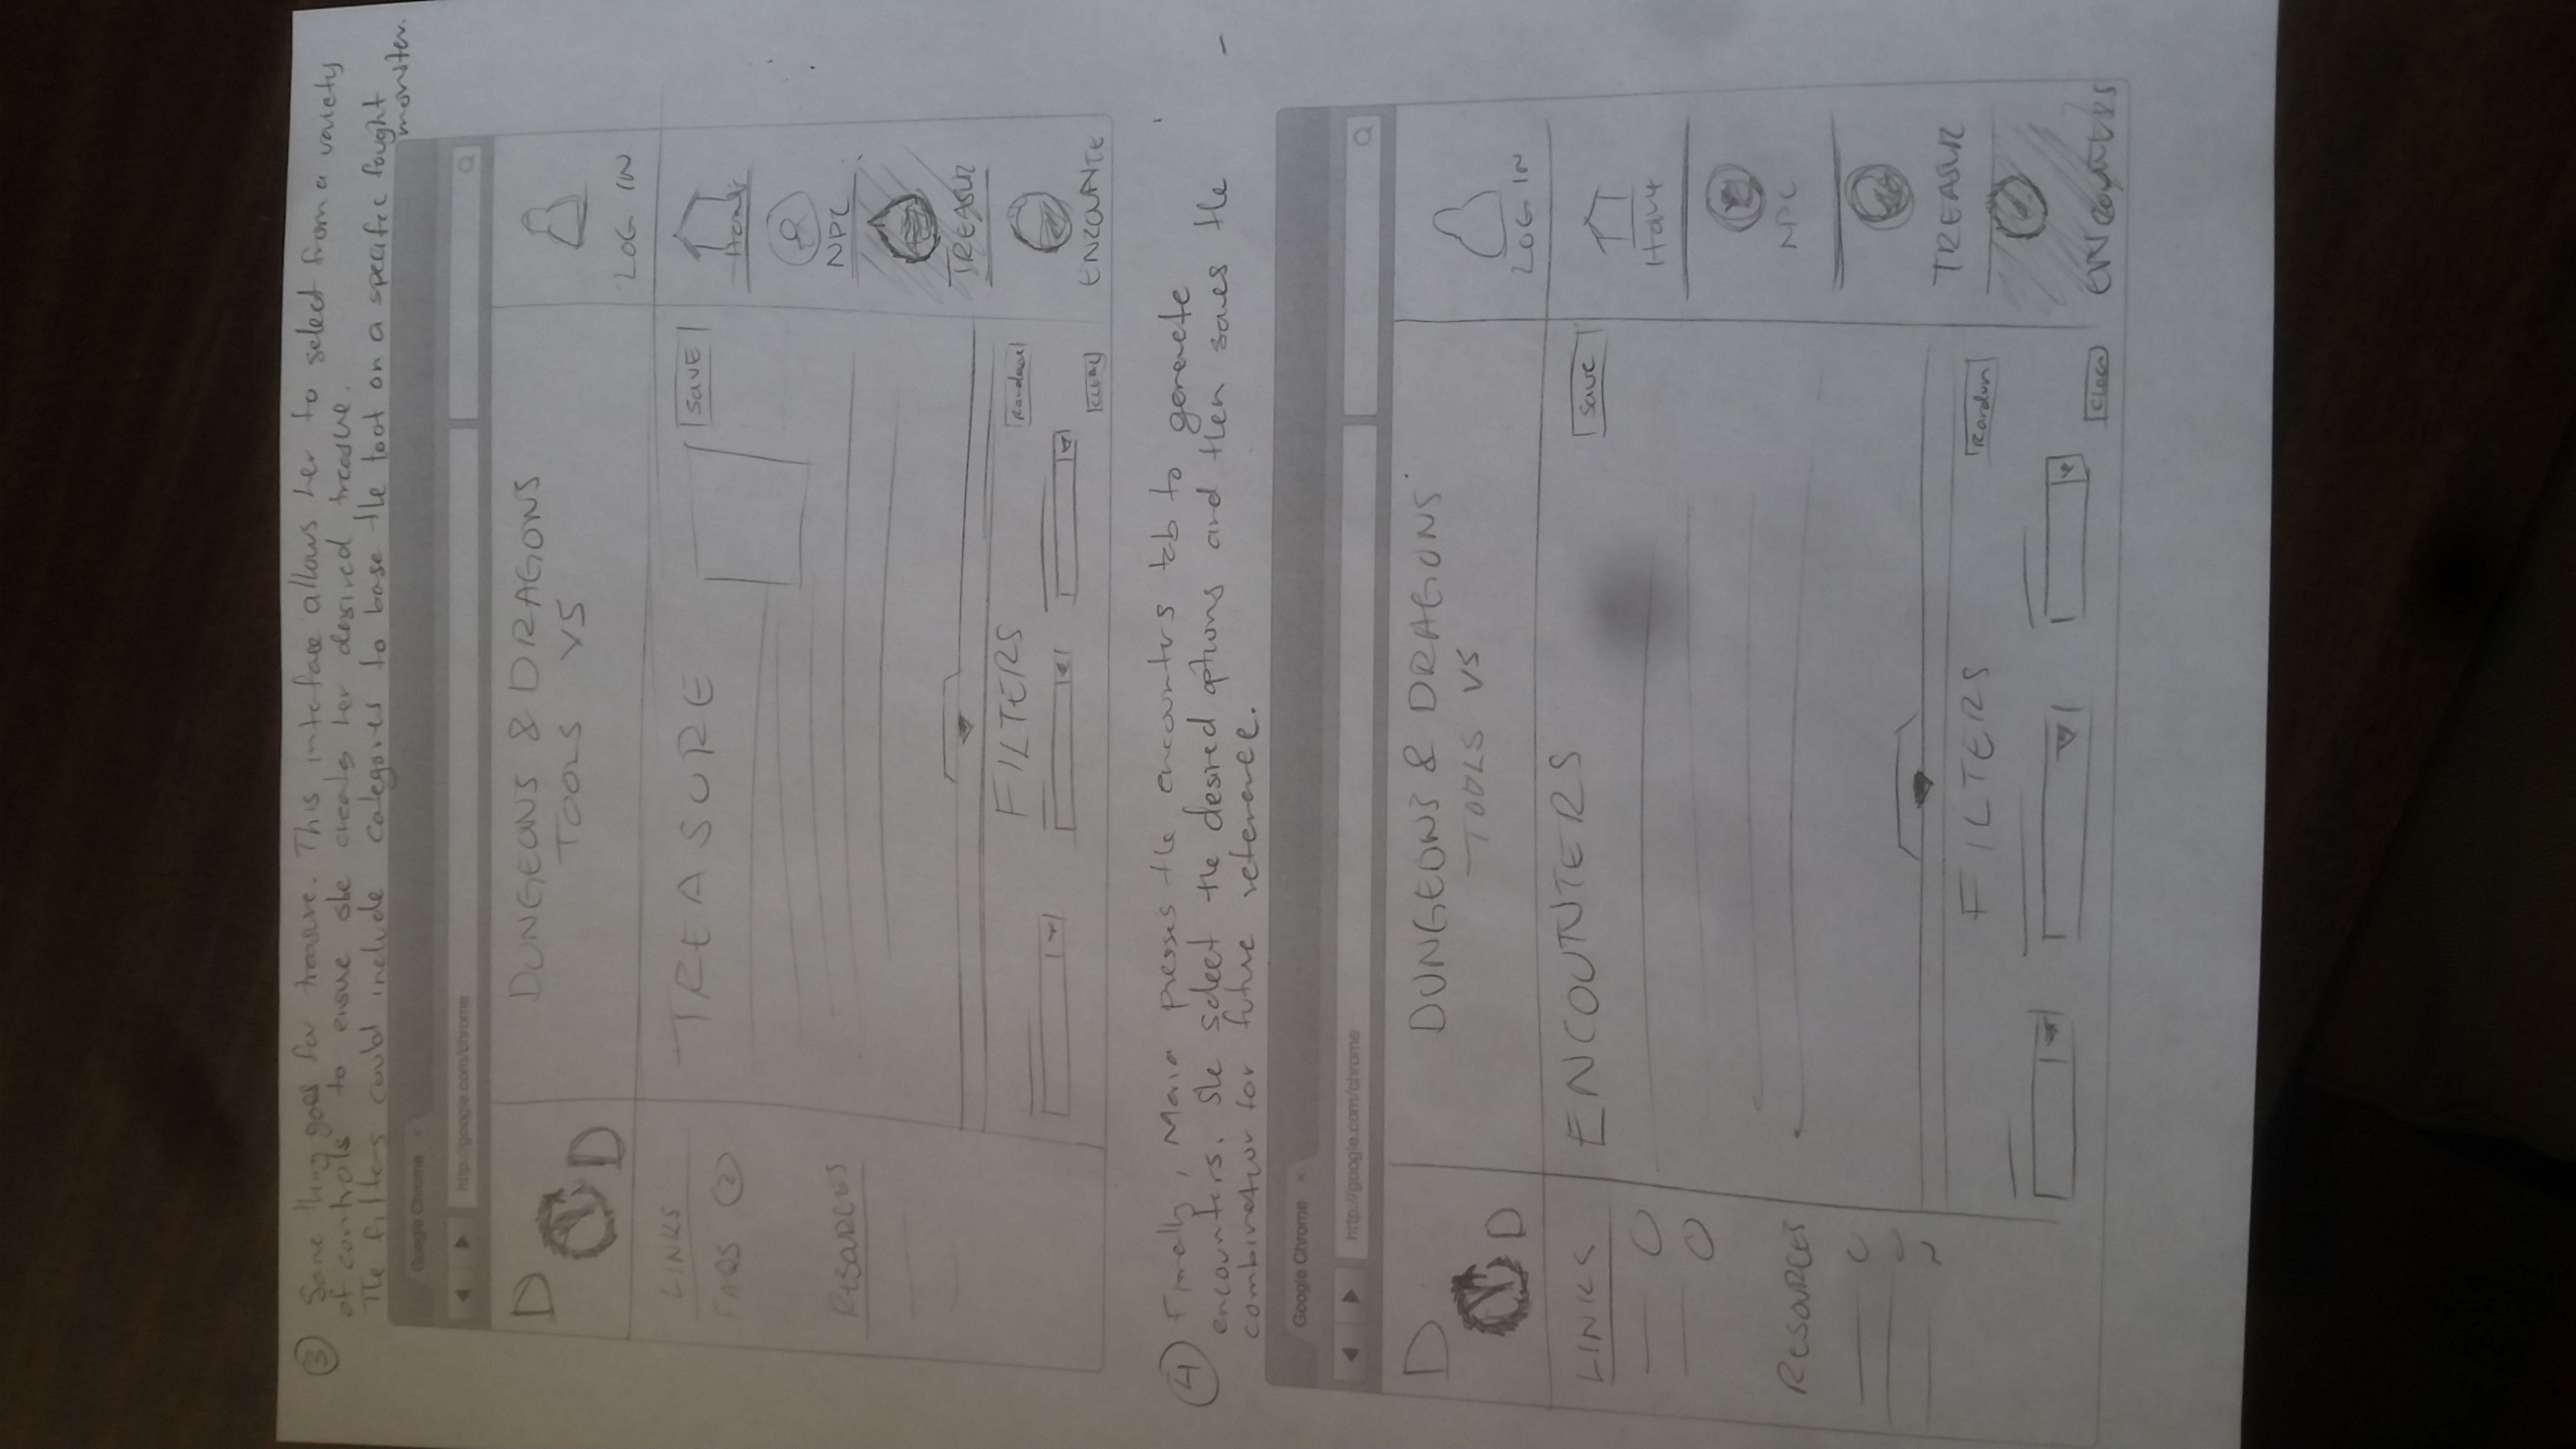 3 Same thing goes for treasure. This interface allows her to select from a variety
of controls to ensue she creates her desired treasue.
The filters could include categories to base the loot on a specific fought
monster.
Google Chrome ×
http://google.com/chrome
D D
DUNGEONS & DRAGONS
TOOLS V5
LOG IN
LINKS
FAQS ?
RESOURCES
TREASURE
SAVE
Home
NPC
TREASUR
ENCOUNTE
FILTERS
CLEAR
4 Finally, Maria presses the encounters tab to generate
encounters. She select the desired options and then saves the
combination for future reference.
Google Chrome ×
http://google.com/chrome
D D
DUNGEONS & DRAGONS
TOOLS V5
LOG IN
LINKS
RESOURCES
ENCOUNTERS
Save
Home
NPC
TREASUR
ENCOUNTERS
FILTERS
Random
Clear